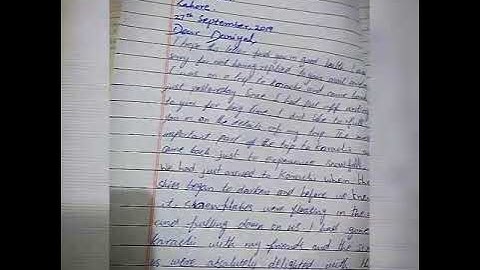 Lahore.
27th September, 2019
Dear Daniyal,
I hope the letter find you in good health. I am
sorry for not having replied to your mail earlier
I was on a trip to Karachi and came back
just yesterday. Since I had put off writing
to you for long time, I did like to fill
you in on the details of my trip. The most
important part of the trip to Karachi
came back just to experience snowfall
we had just arrived to Karachi when the
skies began to darken and before we knew
it snowflakes were floating in the
and falling down on us. I had gone
Karachi with my friends and the six
us were absolutely delighted with the